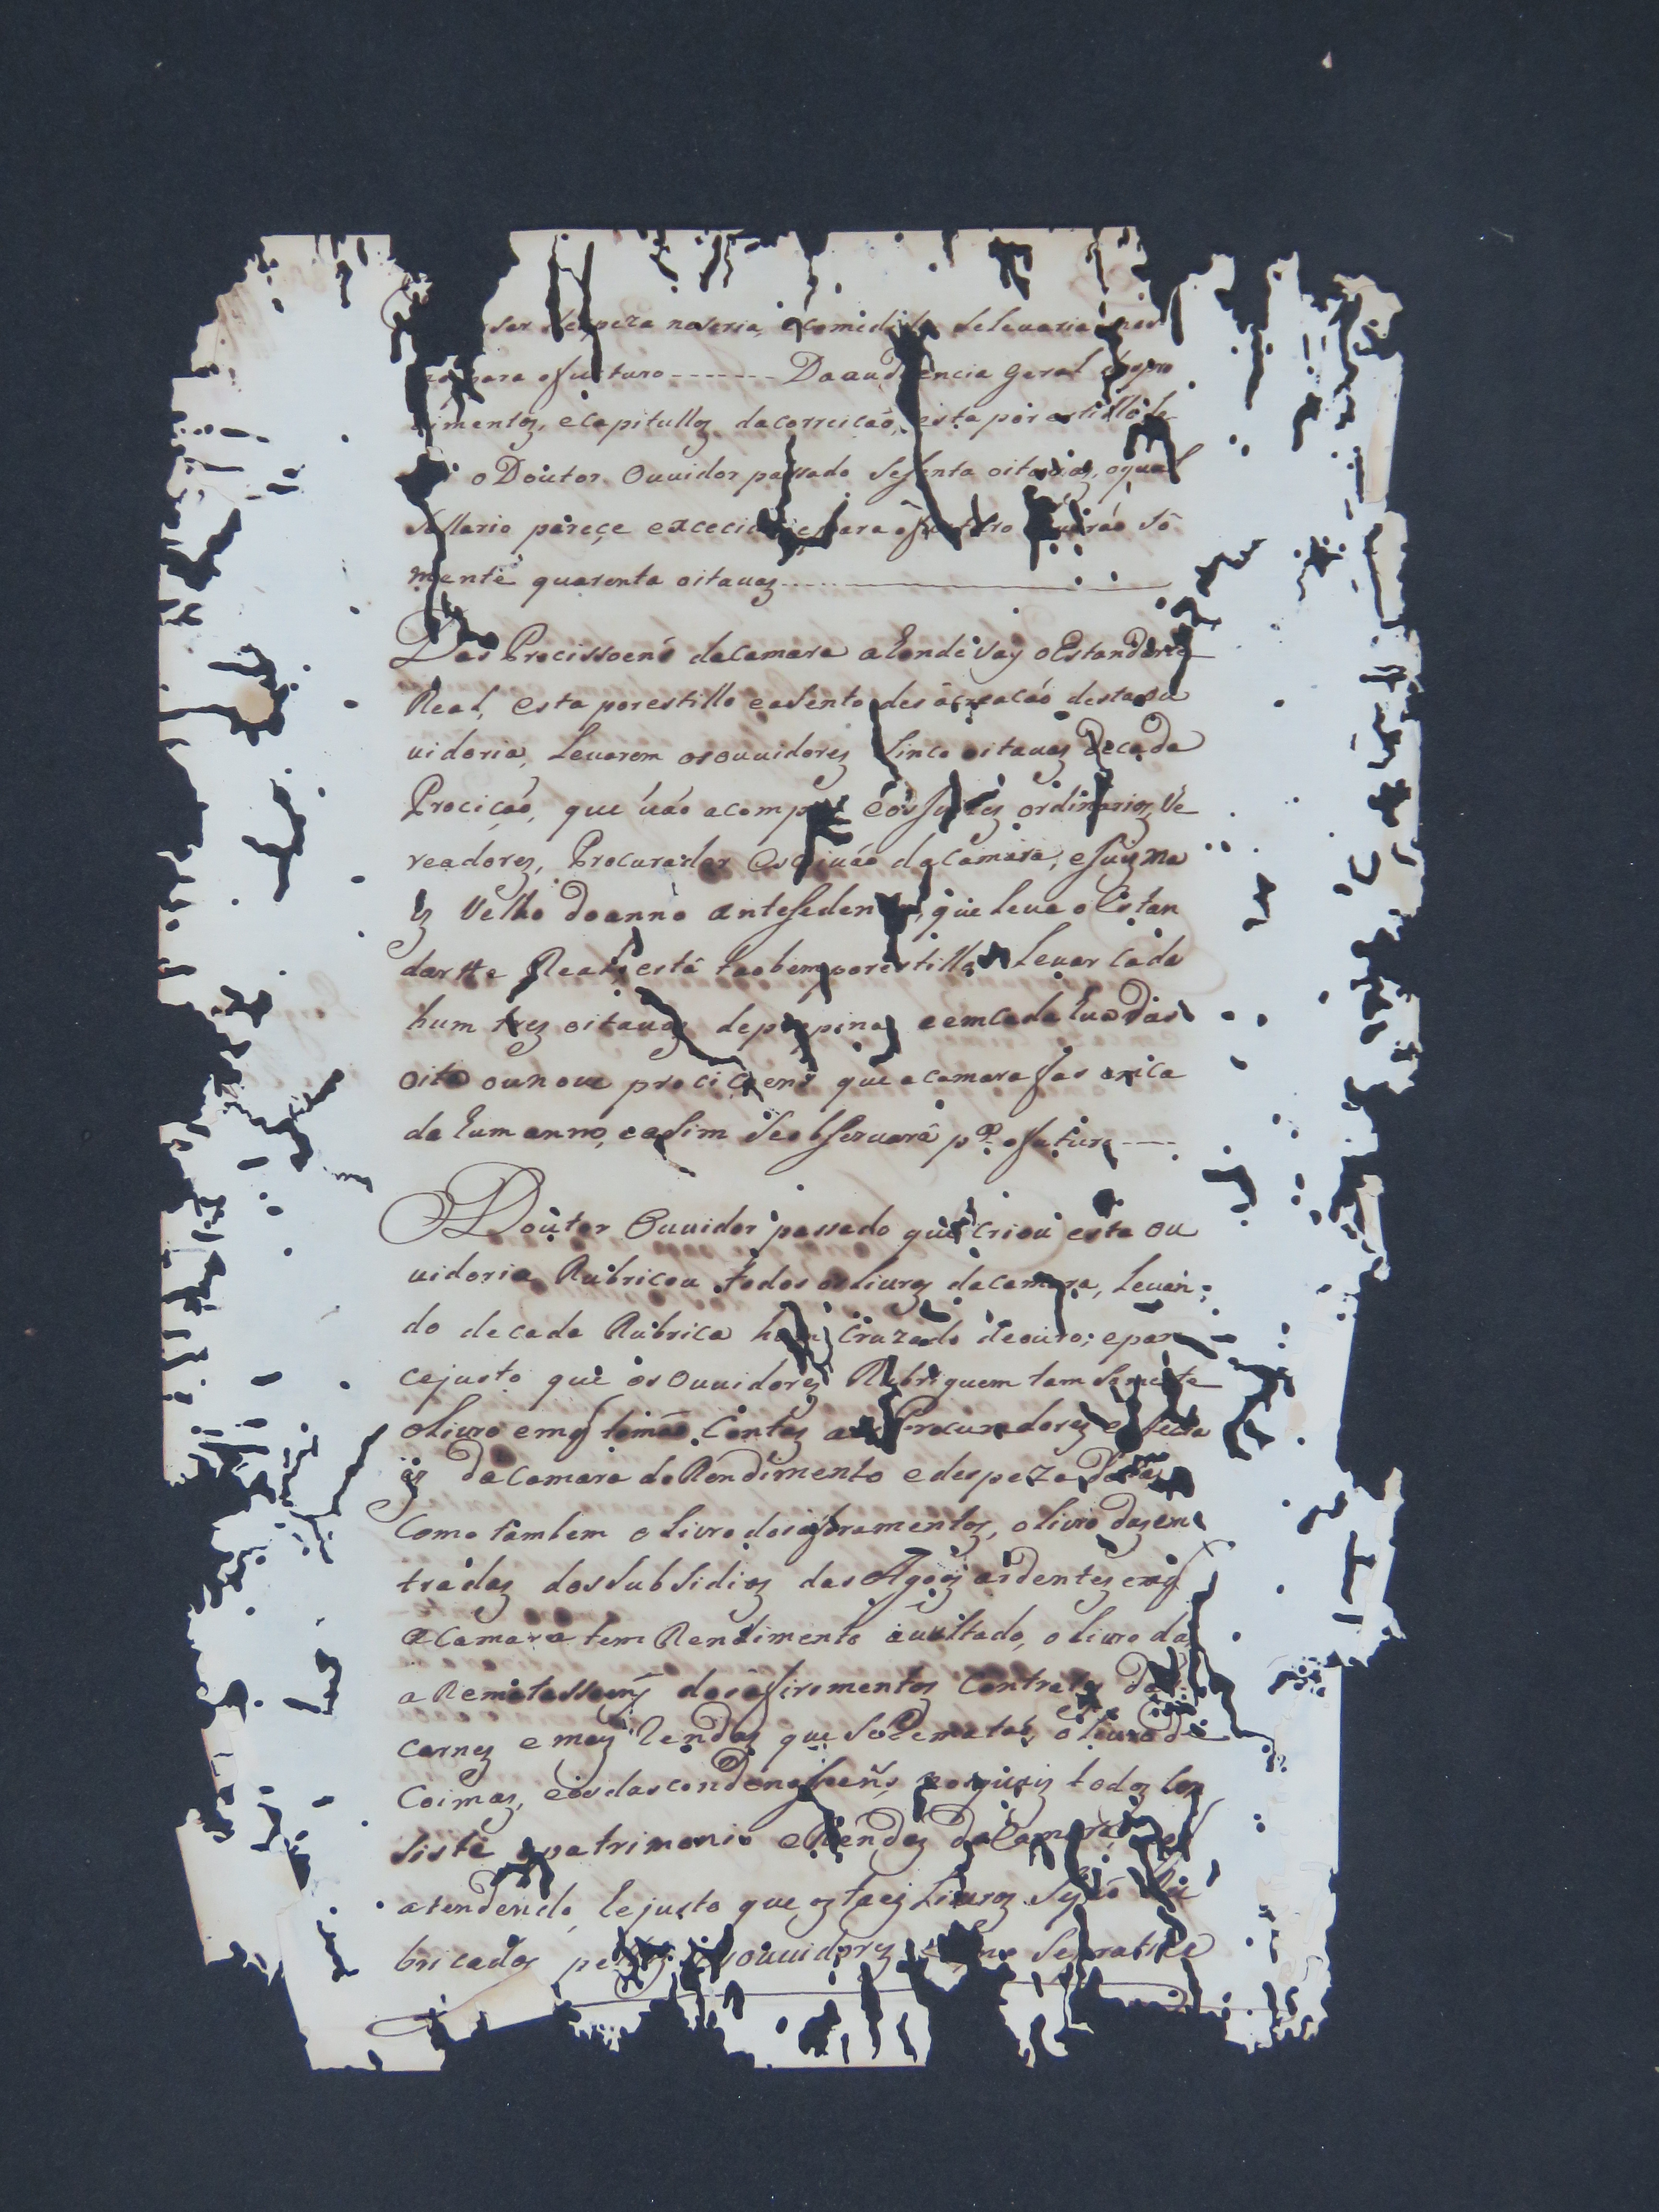 ser despeza naseria, ecomedida selevaria
para ofucturo ------- Da audiencia geral epro
imentoz, ecapitulloz dacorreicaó, esta por estillo le
o Doutor Ouuidor passado sesenta oitauaz, oqual
sallario pareçe excecivo epara ofucturo leuaráo só
mente quarenta oitauaz
Das Procissoens dacamara a honde vay oEstandarte
Real, esta porestillo easento des acreacaó destaou
uidoria, Leuarem osouuidorez sinco oitauaz decada
Prociçaó, que uáo acomp eos Juizez ordinarioz, Ve
readorez, Procurador Escriuáo dacamara, eJuiz ma
iz Velho doanno antesedente, que leua oEstan
dartte Real, está taobem porestillo Leuar cada
hum trez oitauaz depropinaz eemcada huadas
oito ounoue prociçoens que acamara fas emca
da humanno, easim seobseruará pª. ofuturo ----
O Doutor Ouuidor passado que criou esta ou
uidoria Rubricou todos osliuroz dacamara, Leuan;
do decada Rubrica hum Cruzado deouro; epare
cejusto que os Ouuidorez Rubriquem tam somente
oliuro emq tomáo Contaz aos Procuradorez e
dacamara do Rendimento edespeza
Como tambem oliuro dosaforamentoz, oliuro dazen
tradaz dossubsidioz das Agoaz ardentez emq
aCamara tem Rendimento auultado, oliuro das
aRematassoenz dosaferimentoz Contratoz das
carnez emaiz Rendaz que seRematáo, oliuro de
Coimaz, eosdascondenassoens, nosquaiz todoz con
siste opatrimonio eRendaz daCamara
atendendo, hejusto que oz taez Liuroz sejáo Ru
bricadoz peloz ouuidorez